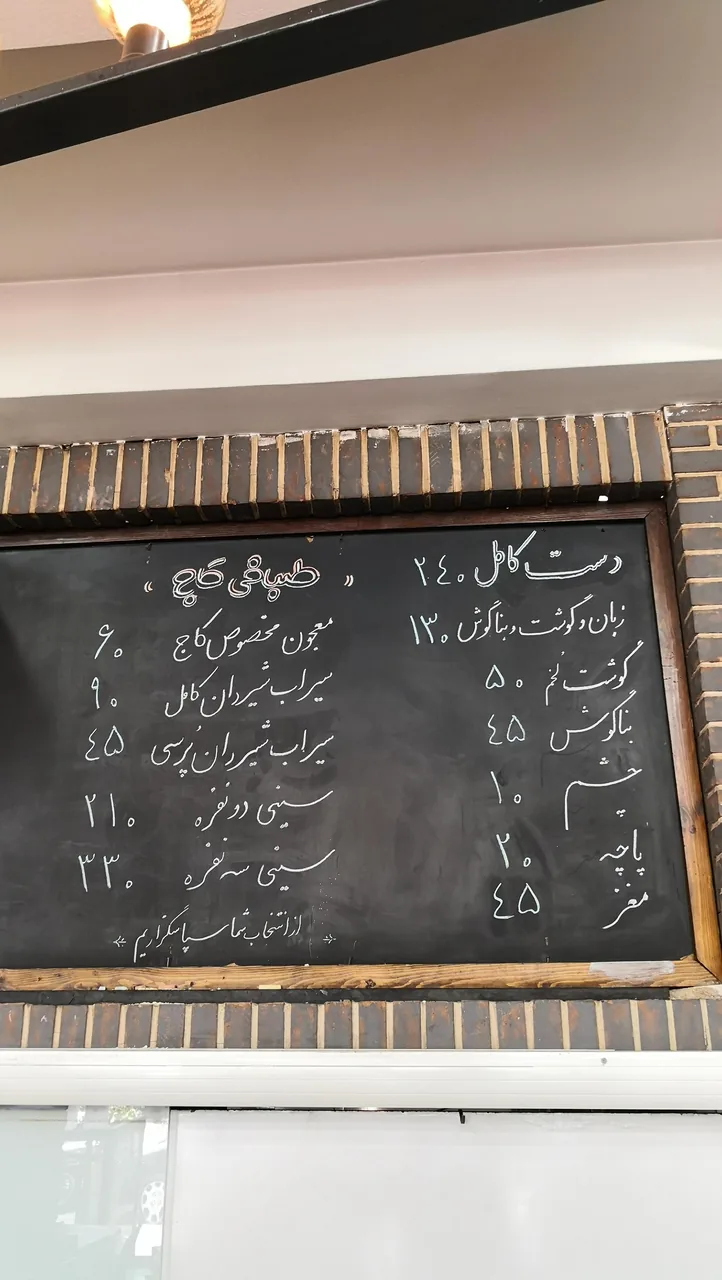 دست کامل ۲۴۰
زبان و گوشت و بناگوش ۱۳۰
گوشت لُخم ۵۰
بناگوش ۴۵
چشم ۱۰
پاچه ۲۰
مغز ۴۵
« طباخی کاج »
معجون مخصوص کاج ۶۰
سیراب شیردان کامل ۹۰
سیراب شیردان پُرسی ۴۵
سینی دو نفره ۲۱۰
سینی سه نفره ۳۳۰
از انتخاب شما سپاسگزاریم